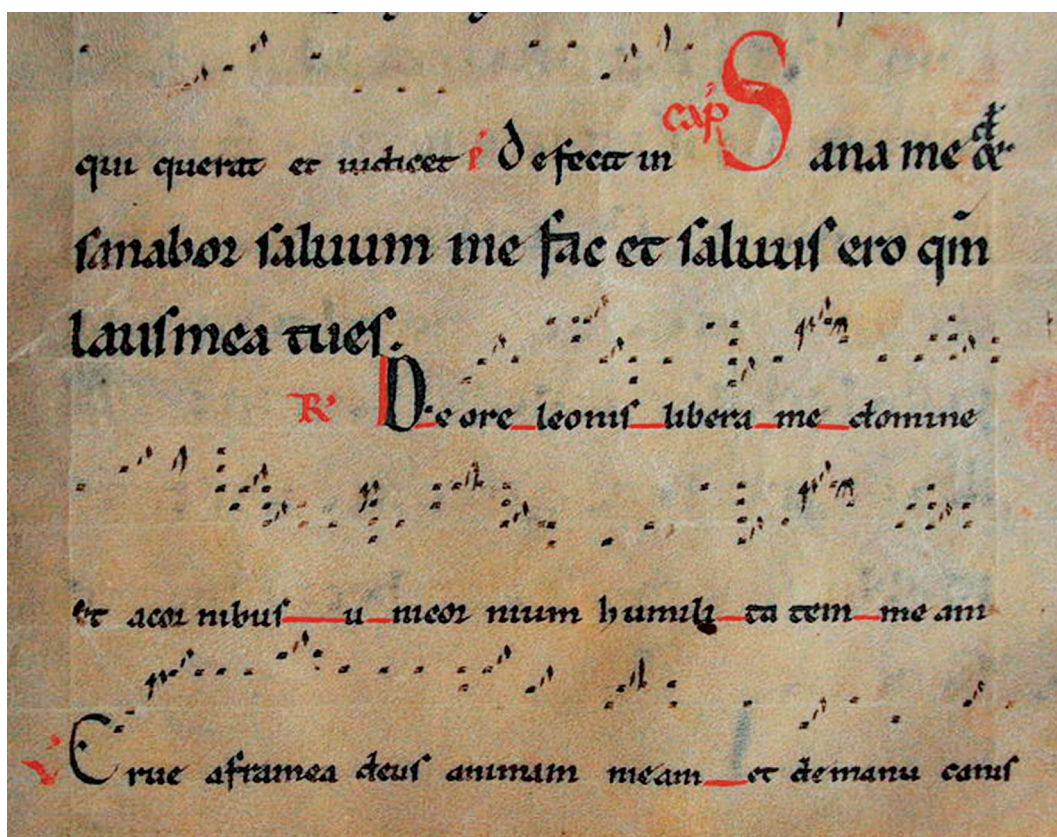 qui querat et iudicet ℟ Defecit in cap Sana me dne
sanabor saluum me fac et saluus ero qm̄
laus mea tu es.
R' De ore leonis libera me domine
et a cornibus u nicor nium humili ta tem me am
V Erue a framea deus animam meam et de manu canis